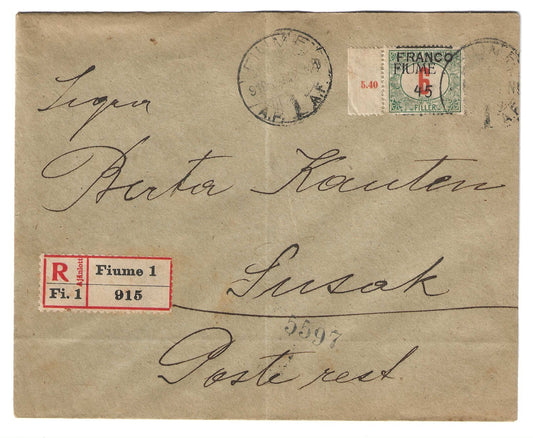 FIUME
A.F.
5.40
FRANCO
FIUME
6
45
FILLÉR
Sigra
Berta Kauten
Susak
R Ajánlott Fiume 1
Fi. 1 915
5597
Poste rest.